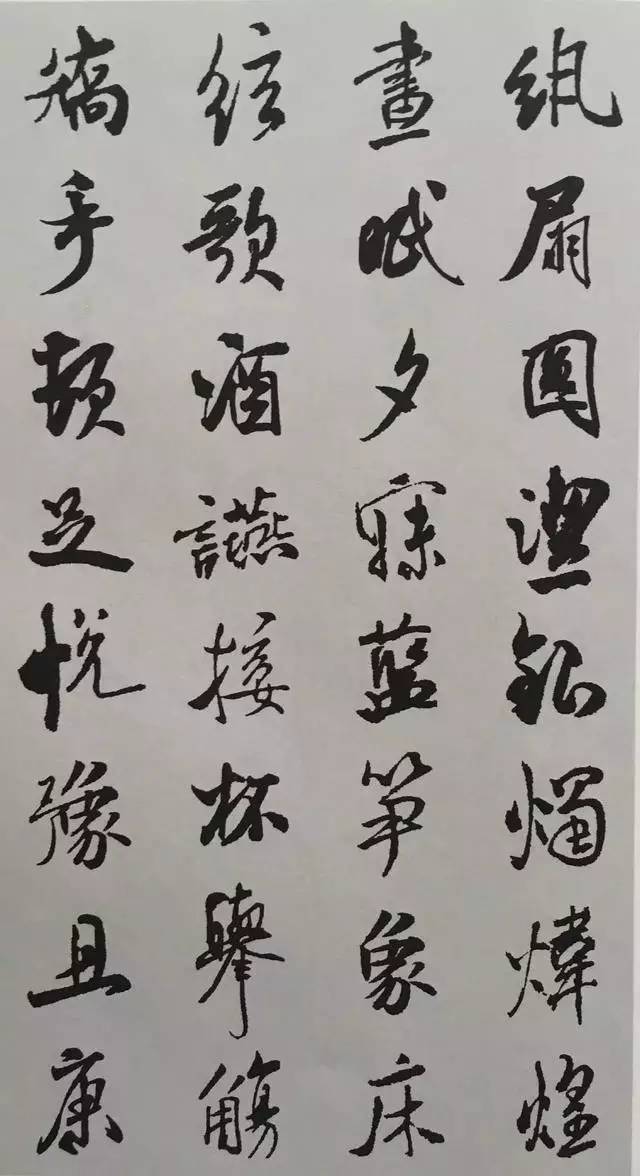 紈扇圓潔銀燭煒煌
晝眠夕寐藍笋象床
絃歌酒讌接杯舉觴
矯手頓足悅豫且康